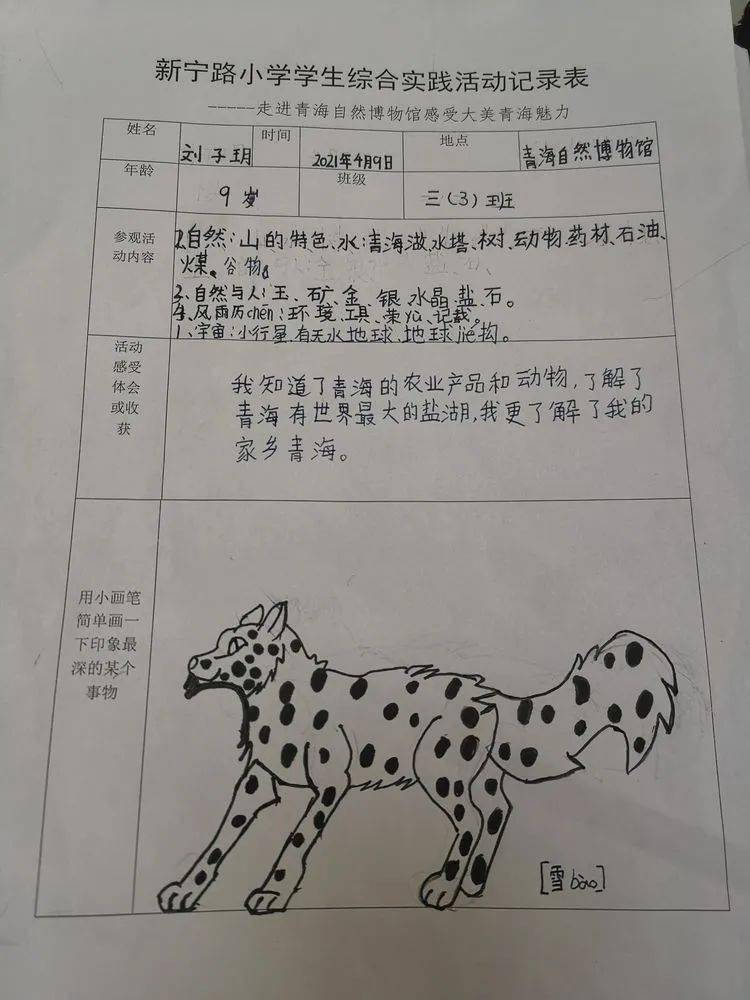 新宁路小学学生综合实践活动记录表
-----走进青海自然博物馆感受大美青海魅力
姓名 刘子玥 时间 2021年4月9日 地点 青海自然博物馆
年龄 9岁 班级 三(3)班
参观活
动内容
2.自然:山的特色、水:青海湖、水塔、树、动物、药材、石油、
火煤。谷物。
3、自然与人:玉、矿、金、银、水晶、盐、石。
4、风雨历chén:环境、工具、记载。
1、宇宙:小行星、有无水地球、地球jié构。
活动
感受
体会
或收
获
我知道了青海的农业产品和动物,了解了
青海有世界最大的盐湖,我更了解了我的
家乡青海。
用小画笔
简单画一
下印象最
深的某个
事物
[雪bào]